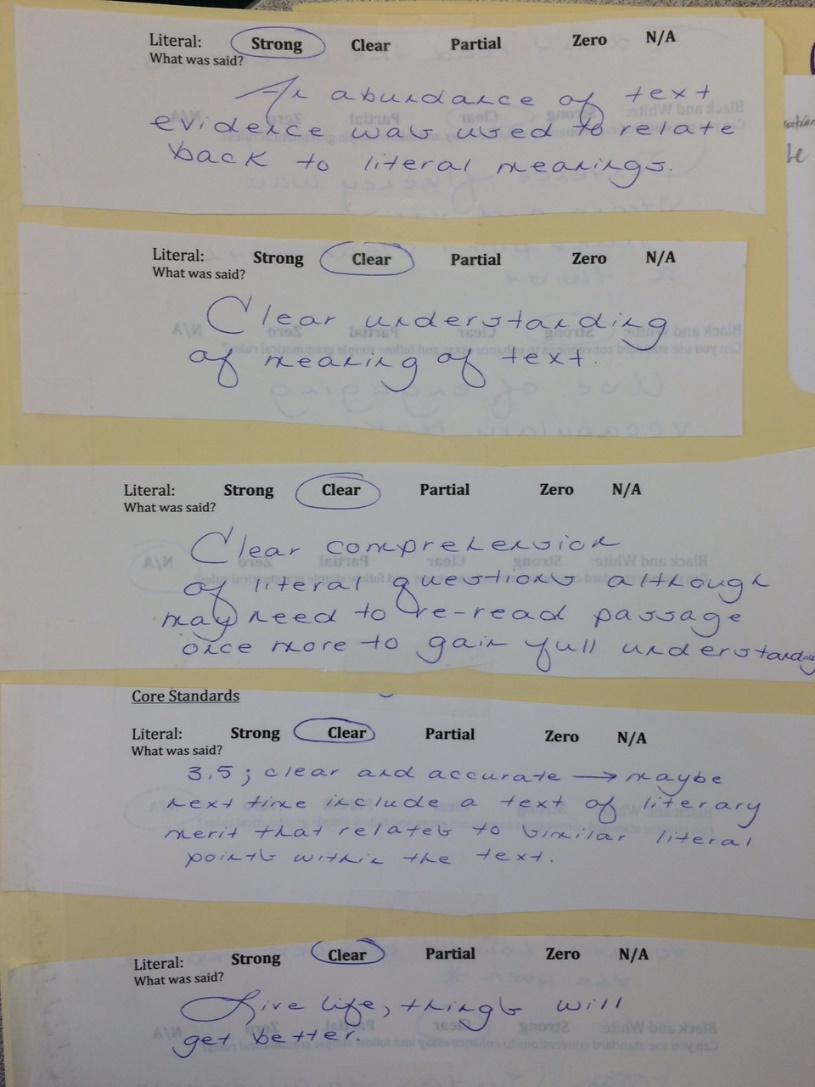 Literal: Strong Clear Partial Zero N/A
What was said?
An abundance of text
evidence was used to relate
back to literal meanings.
Literal: Strong Clear Partial Zero N/A
What was said?
Clear understanding
of meaning of text.
Literal: Strong Clear Partial Zero N/A
What was said?
Clear comprehension
of literal questions although
may need to re-read passage
once more to gain full understanding
Core Standards
Literal: Strong Clear Partial Zero N/A
What was said?
3.5; clear and accurate → maybe
next time include a text of literary
merit that relates to similar literal
points within the text.
Literal: Strong Clear Partial Zero N/A
What was said?
Live life, things will
get better.